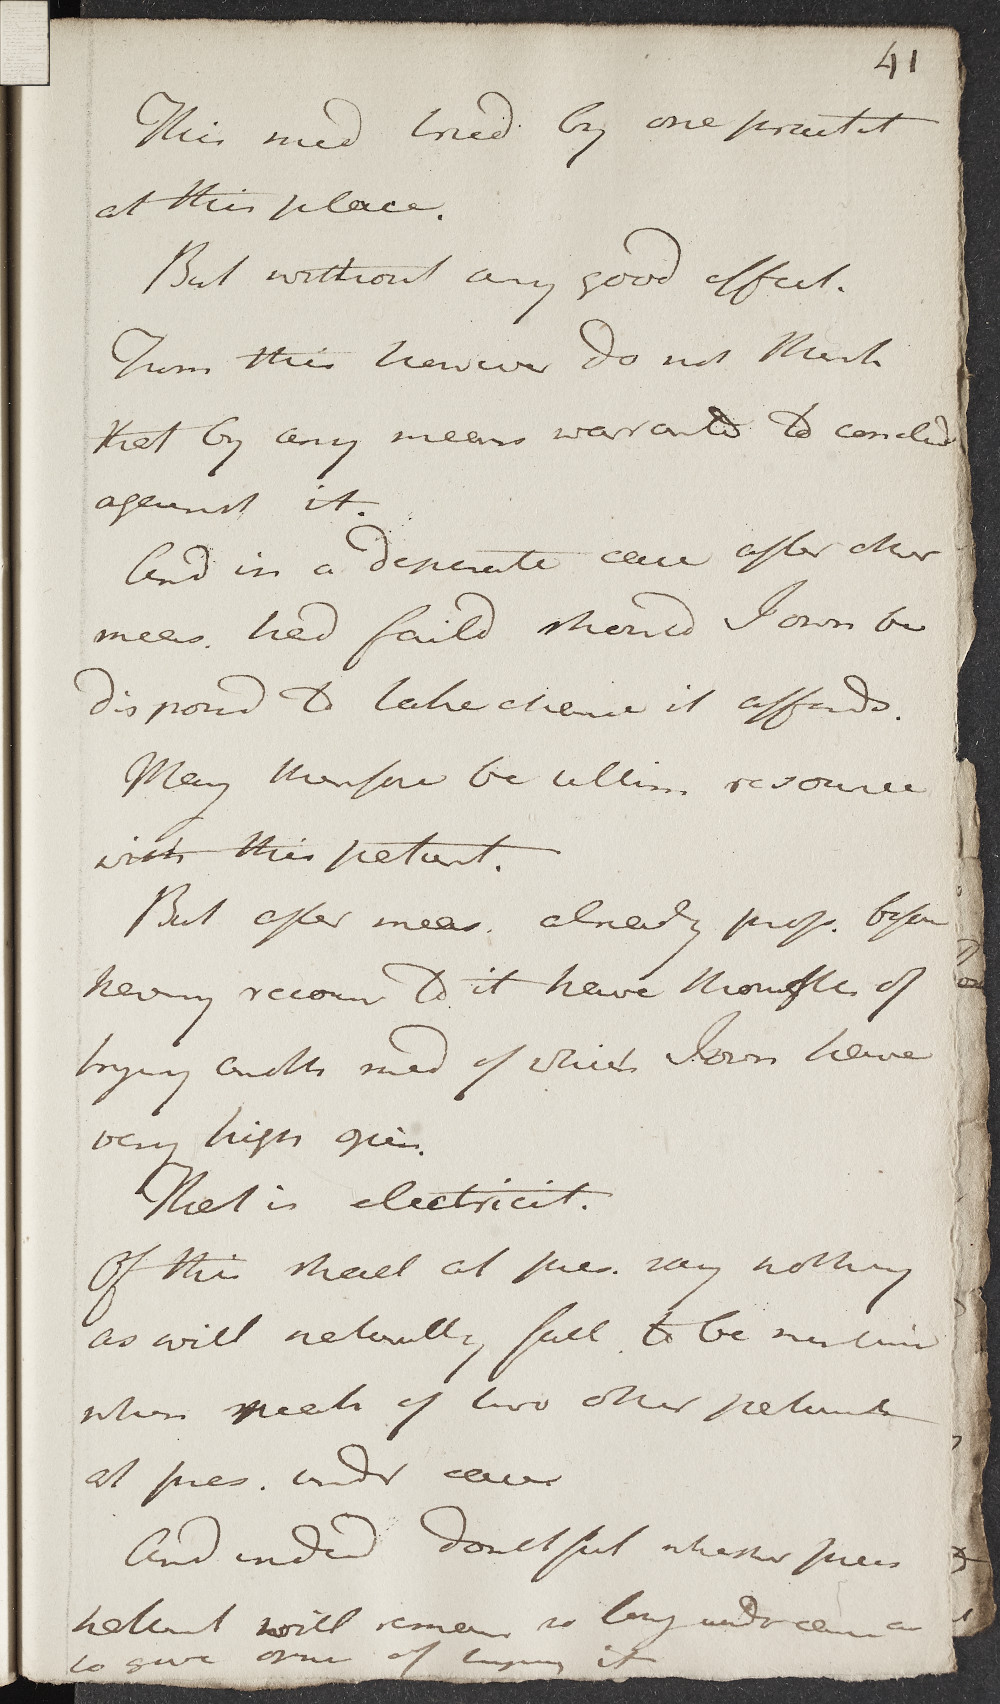 41
This med tried by one practit
at this place.
But without any good effect.
From this however do not think
that by any means warranted to conclud
against it.
And in a desperate case after other
meas. had faild should I own be
disposed to take chance it affords.
May therefore be ultim. resource
with this patient.
But after meas. already prop. befor
having recour to it have thoughts of
trying anoth med of which I own have
very high opin.
That is electricit.
Of this shall at pres. say nothing
as will naturally fall to be
when speak of two other patients
at pres. undr care
And indeed doubtful whether pres
patient will remain so long undr care as
to give of trying it